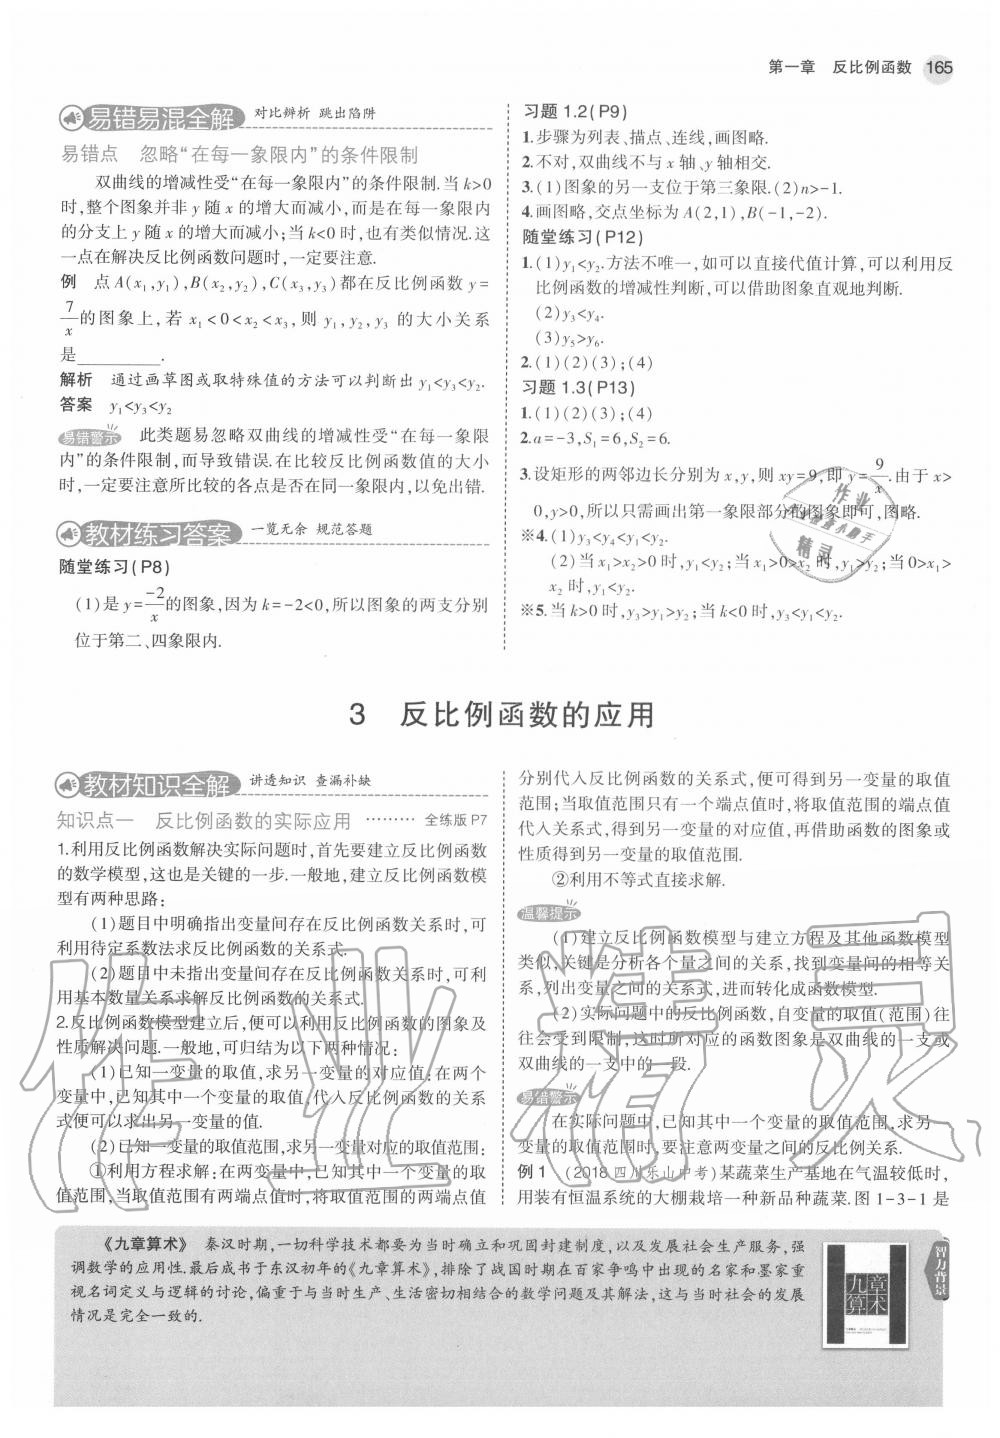 第一章 反比例函数 165
易错易混全解 对比辨析 跳出陷阱
易错点 忽略“在每一象限内”的条件限制
双曲线的增减性受“在每一象限内”的条件限制.当k>0
时,整个图象并非y随x的增大而减小,而是在每一象限内
的分支上y随x的增大而减小;当k<0时,也有类似情况.这
一点在解决反比例函数问题时,一定要注意.
例 点A(x₁,y₁),B(x₂,y₂),C(x₃,y₃)都在反比例函数y=
7/x的图象上,若x₁<0<x₂<x₃,则y₁,y₂,y₃的大小关系
是________.
解析 通过画草图或取特殊值的方法可以判断出y₁<y₃<y₂.
答案 y₁<y₃<y₂
易错警示 此类题易忽略双曲线的增减性受“在每一象限
内”的条件限制,而导致错误.在比较反比例函数值的大小
时,一定要注意所比较的各点是否在同一象限内,以免出错.
教材练习答案 一览无余 规范答题
随堂练习(P8)
(1)是y=-2/x的图象,因为k=-2<0,所以图象的两支分别
位于第二、四象限内.
习题1.2(P9)
1.步骤为列表、描点、连线,画图略.
2.不对,双曲线不与x轴、y轴相交.
3.(1)图象的另一支位于第三象限.(2)n>-1.
4.画图略,交点坐标为A(2,1),B(-1,-2).
随堂练习(P12)
1.(1)y₁<y₂.方法不唯一,如可以直接代值计算,可以利用反
比例函数的增减性判断,可以借助图象直观地判断.
(2)y₃<y₄.
(3)y₅>y₆.
2.(1)(2)(3);(4)
习题1.3(P13)
1.(1)(2)(3);(4)
2.a=-3,S₁=6,S₂=6.
3.设矩形的两邻边长分别为x,y,则xy=9,即y=9/x.由于x>
0,y>0,所以只需画出第一象限部分的图象即可,图略.
※4.(1)y₃<y₄<y₁<y₂.
(2)当x₁>x₂>0时,y₁<y₂;当x₁>0>x₂时,y₁>y₂;当0>x₁>
x₂时,y₁<y₂.
※5.当k>0时,y₃>y₁>y₂;当k<0时,y₃<y₁<y₂.
3 反比例函数的应用
教材知识全解 讲透知识 查漏补缺
知识点一 反比例函数的实际应用 ……… 全练版P7
1.利用反比例函数解决实际问题时,首先要建立反比例函数
的数学模型,这也是关键的一步.一般地,建立反比例函数模
型有两种思路:
(1)题目中明确指出变量间存在反比例函数关系时,可
利用待定系数法求反比例函数的关系式.
(2)题目中未指出变量间存在反比例函数关系时,可利
用基本数量关系求解反比例函数的关系式.
2.反比例函数模型建立后,便可以利用反比例函数的图象及
性质解决问题.一般地,可归结为以下两种情况:
(1)已知一变量的取值,求另一变量的对应值:在两个
变量中,已知其中一个变量的取值,代入反比例函数的关系
式便可以求出另一变量的值.
(2)已知一变量的取值范围,求另一变量对应的取值范围:
①利用方程求解:在两变量中,已知其中一个变量的取
值范围,当取值范围有两端点值时,将取值范围的两端点值
分别代入反比例函数的关系式,便可得到另一变量的取值
范围;当取值范围只有一个端点值时,将取值范围的端点值
代入关系式,得到另一变量的对应值,再借助函数的图象或
性质得到另一变量的取值范围.
②利用不等式直接求解.
温馨提示
(1)建立反比例函数模型与建立方程及其他函数模型
类似,关键是分析各个量之间的关系,找到变量间的相等关
系,列出变量之间的关系式,进而转化成函数模型.
(2)实际问题中的反比例函数,自变量的取值(范围)往
往会受到限制,这时所对应的函数图象是双曲线的一支或
双曲线的一支中的一段.
易错警示
在实际问题中,已知其中一个变量的取值范围,求另一
变量的取值范围时,要注意两变量之间的反比例关系.
例1 (2018四川乐山中考)某蔬菜生产基地在气温较低时,
用装有恒温系统的大棚栽培一种新品种蔬菜.图1-3-1是
《九章算术》 秦汉时期,一切科学技术都要为当时确立和巩固封建制度,以及发展社会生产服务,强
调数学的应用性.最后成书于东汉初年的《九章算术》,排除了战国时期在百家争鸣中出现的名家和墨家重
视名词定义与逻辑的讨论,偏重于与当时生产、生活密切相结合的数学问题及其解法,这与当时社会的发展
情况是完全一致的.
九章
算术
智力背景
作业精灵
作业
精灵